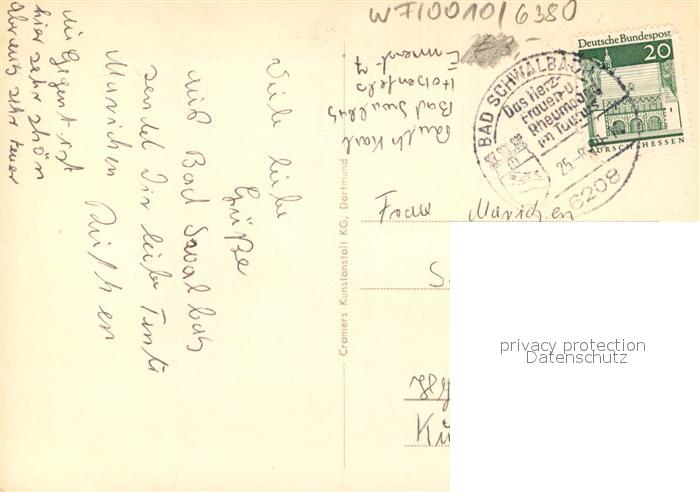 WF10010/6380
Deutsche Bundespost
20
LORSCH/HESSEN
BAD SCHWALBACH
Das Herz-
Frauen-u.
Rheumabad
im Taunus
25.
6208
Ruth Karl
Bad
Viele liebe
Grüße
aus Bad Swalbach
sendet Dir liebe Tante
Marichen
Ruthchen
die Gegent ist
hier sehr schön
aber auch sehr teuer
Cramers Kunstanstalt KG, Dortmund
Frau Marichen
S
Kü
privacy protection
Datenschutz